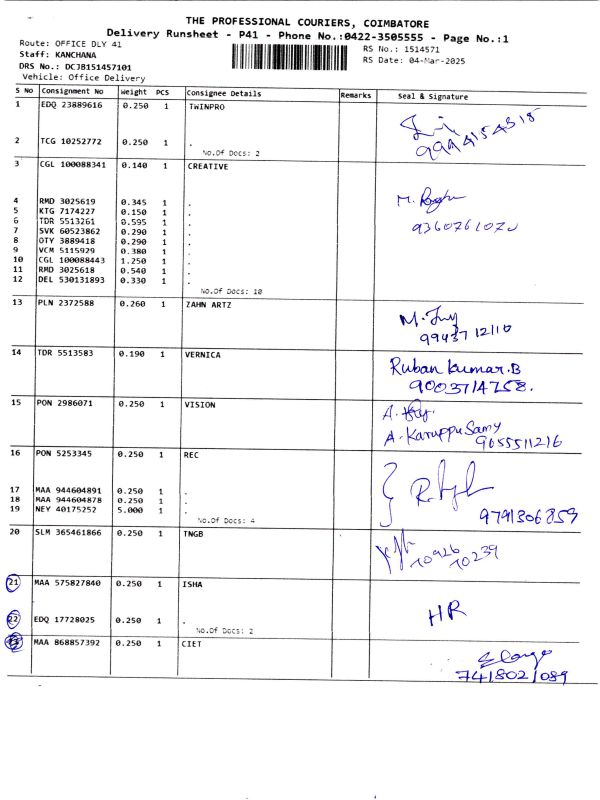 THE PROFESSIONAL COURIERS, COIMBATORE
Delivery Runsheet - P41 - Phone No.:0422-3505555 - Page No.:1
Route: OFFICE DLY 41
RS No.: 1514571
Staff: KANCHANA
RS Date: 04-Mar-2025
DRS No.: DCJB151457101
Vehicle: Office Delivery
S No Consignment No Weight PCS Consignee Details Remarks Seal & Signature
1 EDQ 23889616 0.250 1 TWINPRO
2 TCG 10252772 0.250 1 .
9994154315
No.Of Docs: 2
3 CGL 100088341 0.140 1 CREATIVE
4 RMD 3025619 0.345 1 .
5 KTG 7174227 0.150 1 .
6 TDR 5513261 0.595 1 .
7 SVK 60523862 0.290 1 .
8 OTY 3889418 0.290 1 .
9 VCM 5115929 0.380 1 .
10 CGL 100088443 1.250 1 .
11 RMD 3025618 0.540 1 .
12 DEL 530131893 0.330 1 .
No.Of Docs: 10
13 PLN 2372588 0.260 1 ZAHN ARTZ
99437 12110
14 TDR 5513583 0.190 1 VERNICA
Ruban Kumar.B
9003714758.
15 PON 2986071 0.250 1 VISION
A. Karuppu Samy
9655511216
16 PON 5253345 0.250 1 REC
17 MAA 944604891 0.250 1 .
18 MAA 944604878 0.250 1 .
19 NEY 40175252 5.000 1 .
9791306859
No.Of Docs: 4
20 SLM 365461866 0.250 1 TNGB
70926 70239
21 MAA 575827840 0.250 1 ISHA
22 EDQ 17728025 0.250 1 .
HR
No.Of Docs: 2
23 MAA 868857392 0.250 1 CIET
7418021089